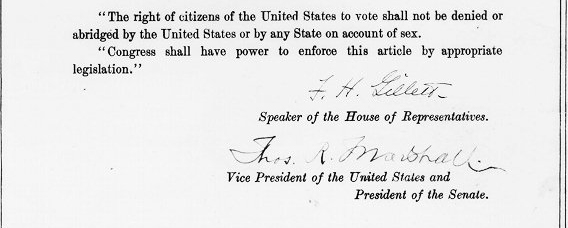 "The right of citizens of the United States to vote shall not be denied or
abridged by the United States or by any State on account of sex.
"Congress shall have power to enforce this article by appropriate
legislation."
F. H. Gillett
Speaker of the House of Representatives.
Thos. R. Marshall.
Vice President of the United States and
President of the Senate.